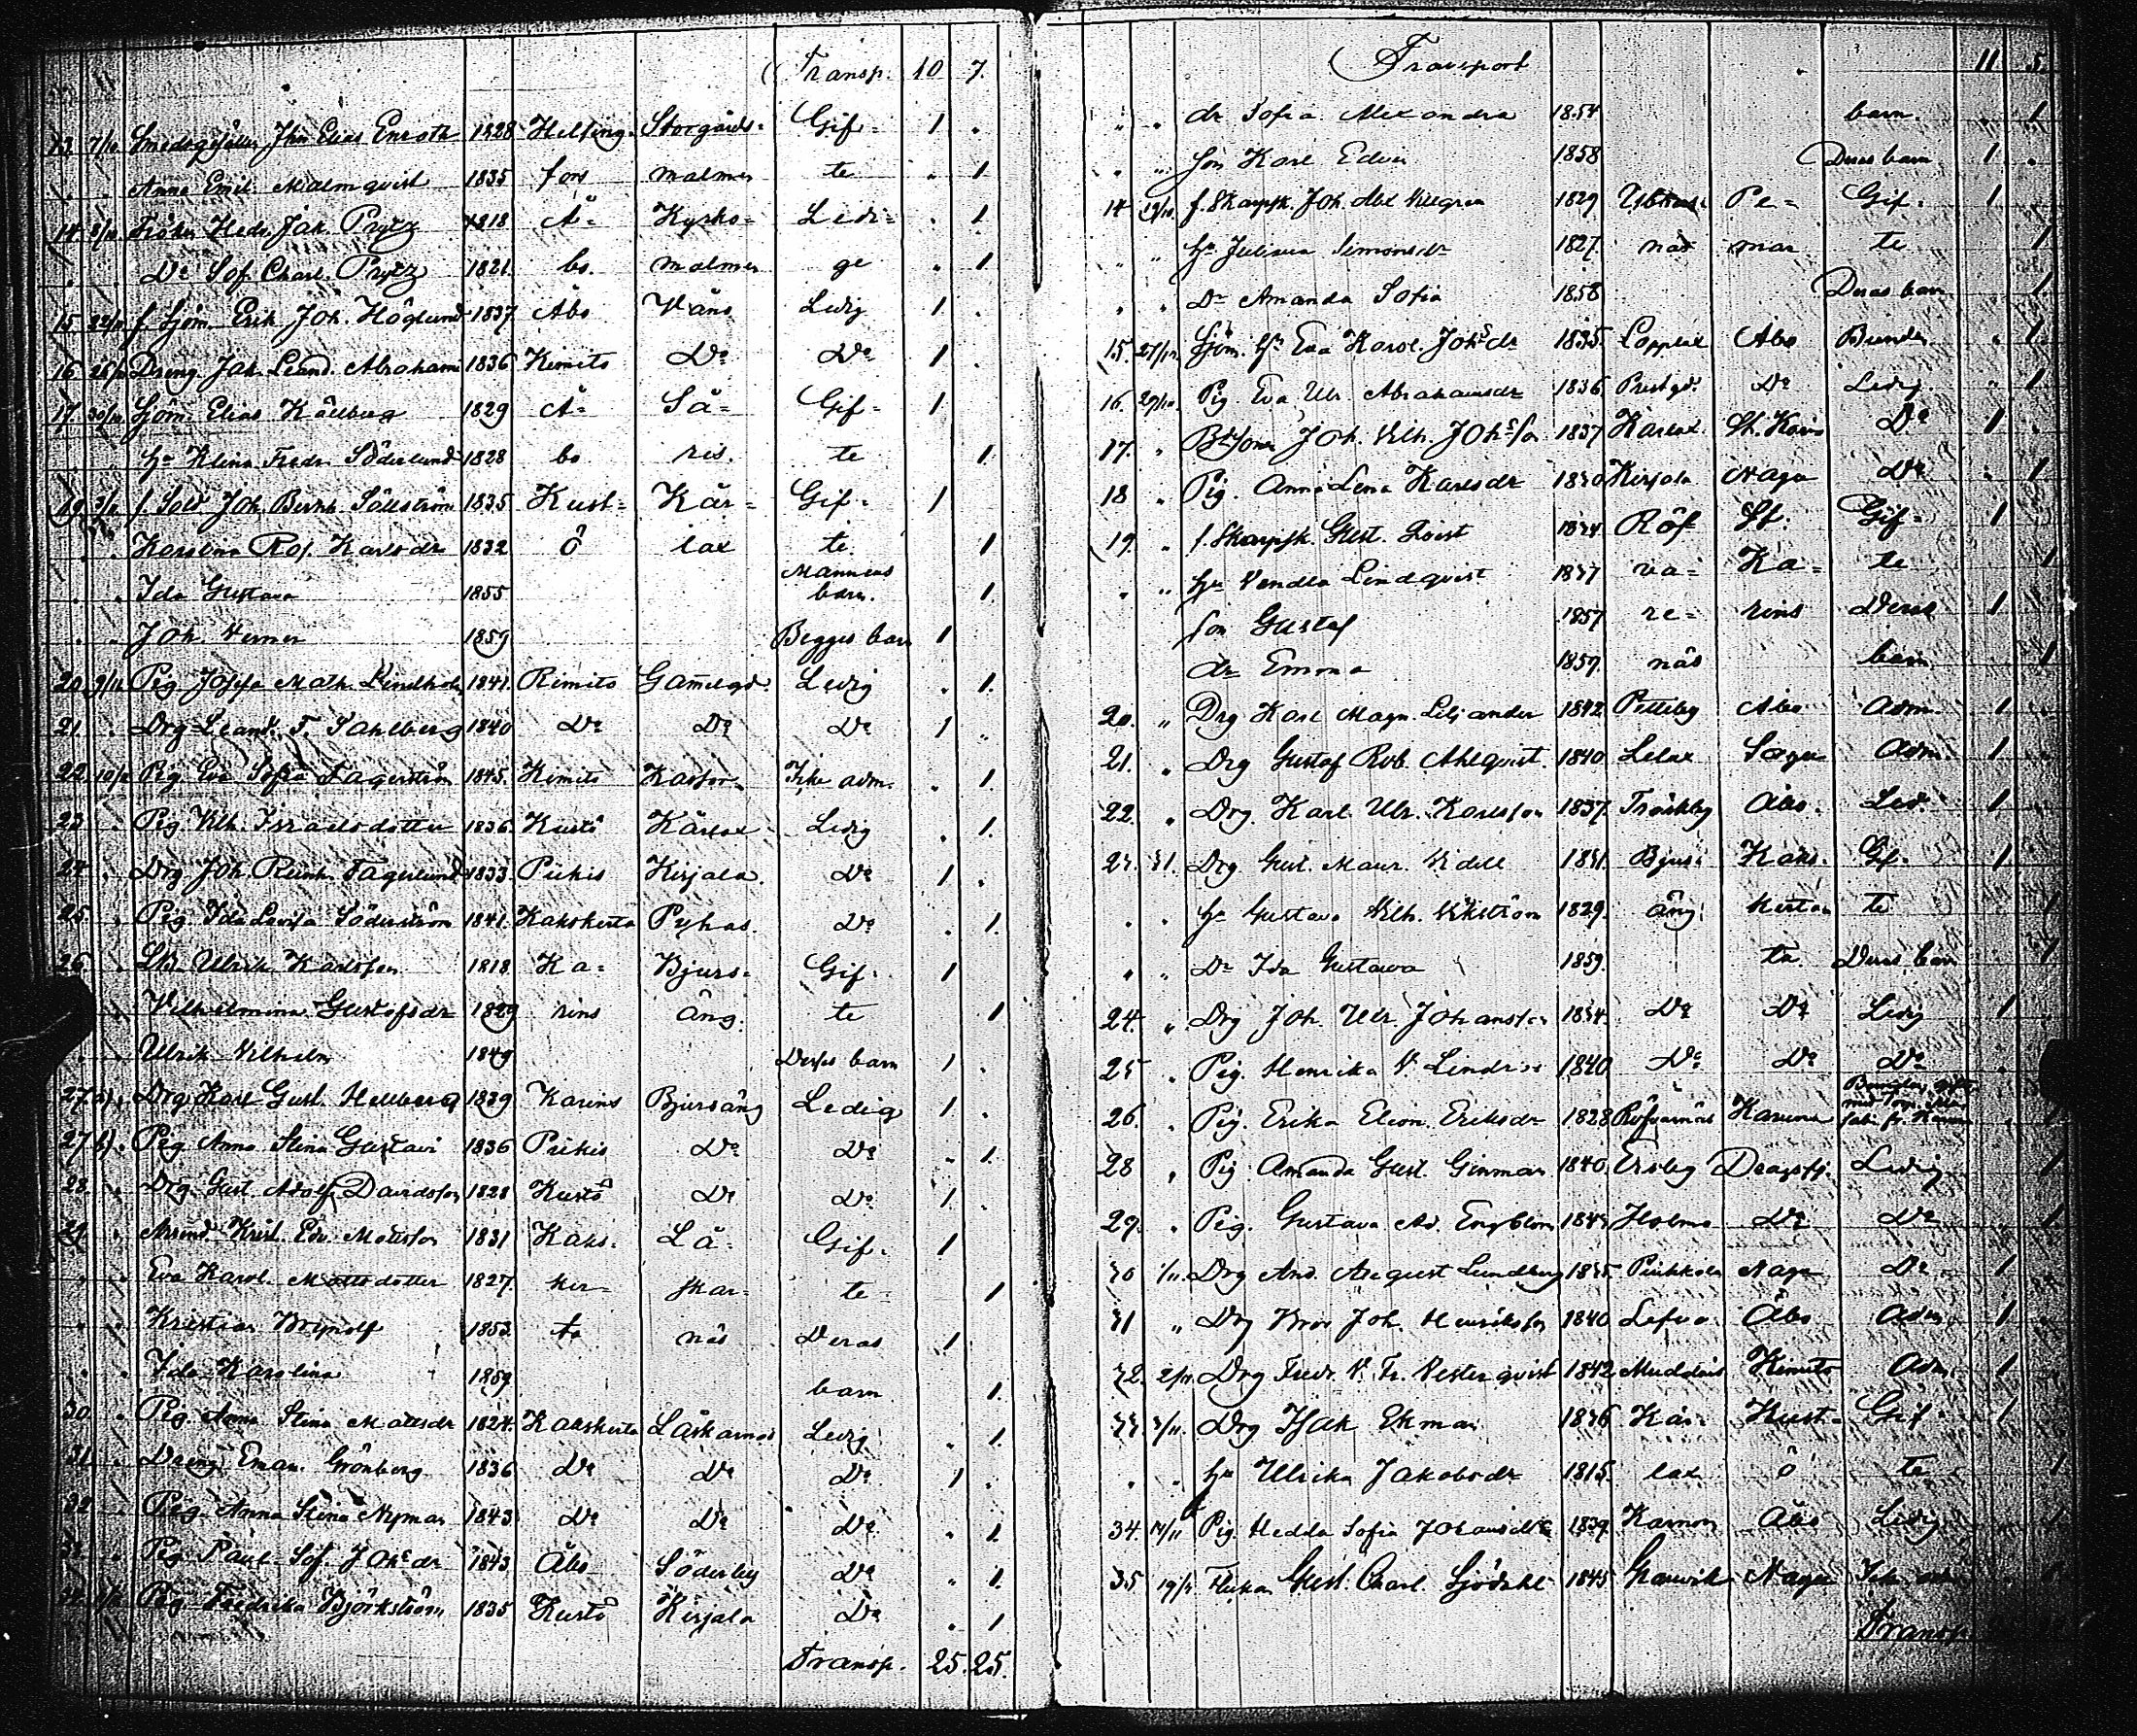 Transp. 10 7.
13 7/10 Smedsgesällen Joh. Elias Enroth 1828 Helsing- Storgårds- Gif- 1 .
. . Anna Emil. Malmqvist 1835 fors malmen te . 1
14 8/10 Fröken Hedv. Jak. Prytz 1818 Å- Kyrko- Ledi- . 1
. . Do Sof. Charl. Prytz 1821 bo. malmen ge . 1
15 22/10 f. Sjöm. Erik Joh. Höglund 1837 Åbo Väno Ledig 1 .
16 26/10 Dreng. Joh. Leand. Abraham 1836 Kimito Do Do 1 .
17 30/10 Sjöm. Elias Källberg 1829 Å- Så- Gif- 1
hu Klina Fredr. Söderlund 1828 bo ris. te 1
19 3/11 f. Sold. Joh. Bernh. Sällström 1835 Kust- Kär- Gif- 1
. . Karolina Ros. Karlsdr 1832 ö lax te. 1
. . Ida Gustava 1855 Mannens barn. 1.
. . Joh. Verner 1859 Begges barn 1
20 9/11 Pig. Josefa Math. Lindholm 1841. Rimito Gammelgd. Ledig . 1.
21 . Drg Leand. F. Sahlberg 1840 Do Do Do 1 .
22 10/11 Pig. Eva Sofia Fagerström 1845. Kimito Icke adm. . 1.
23 . Pig. Vilh. Israelsdotter 1836. Kustö Kärlax Ledig . 1.
24 . Drg Joh. Reinh. Fagerlund 1833. Pikis Kirjala. Do 1 .
25. . Pig Ida Lovisa Söderström 1841. Kakskerta Pyhas. Do . 1.
26 . Ulrik Karlsson 1818 Ka- Bjurs- Gif- 1
Vilhelmina Gustafsdr 1829 rins äng. te 1
. . Ulrik Vilhelm 1849 Deras barn 1 .
27 a) . Drg Karl Gust. Hellberg 1839 Karins Bjursäng Ledig 1 .
27 b) . Pig Anna Stina Gustavi 1836 Pikis Do Do . 1.
28. . Drg. Gust. Adolf Davidsson 1828 Kustö Do Do 1 .
29 . Krist. Edv. Mattsson 1831 Kaks- Lä- Gif- 1
. . Eva Karol. Mattsdotter 1827. ker- skar- te- 1
. . Kristian Brynolf 1853. ta näs Deras 1
. . Ida Karolina 1859 barn 1.
30 . Pig. Anna Stina Mattsdr 1824. Kakskerta Läskarnäs Ledig . 1.
31 . Dreng Eman. Grönberg 1836 Do Do Do 1 .
32 . Pig. Anna Stina Nyman 1843 Do Do Do . 1.
33 . Pig. Paul. Sof. Johsdr 1843 Åbo Söderby Do . 1.
34 Pig. Fredrika Björkström 1835 Kustö Kirjala Do . 1
Transp. 25. 25.
Transport 11 5.
. . dr Sofia Alexandra 1854. barn. . 1
. . Son Karl Edvin 1858 Deras barn 1 .
14 19/10. f. Skarpsk. Joh. Abel Villgren 1829 Pe- Gif- 1
. . hu Juliana Simonsdr 1827. näs mar te 1
. . Dr Amanda Sofia 1858 Deras barn 1.
15. 27/10. Sjöm. hu Eva Karol. Johsdr 1835. Lopplax Åbo . 1.
16. 29/10. Pig. Eva Ulr. Abrahamsdr 1836. Prestgd. Do Ledig . 1
17. . Joh. Vilh. Johsson 1837 Kärlax St. Karins Do 1 .
18 . Pig. Anna Lena Karlsdr 1830 Kirjala Nagu Do . 1
19. . f. Skarpsk. Gust. Qvist 1834. Röf St. Gif- 1
. . hu Vendla Lindqvist 1837 va- Ka- te 1
son Gustaf 1857 re- rins Deras 1
dr Emma 1859. näs barn 1
20. " Drg Karl Magn. Liljander 1842 Pitteby Åbo Adm. 1
21. " Drg Gustaf Rob. Ahlqvist. 1840 Lelax Sagu Adm. 1
22. " Drg. Karl Ulr. Karlsson 1837. Träskby Åbo. Led. 1
23. 31. Drg Gust. Maur. Videll 1831. Bjurs- Kaks- Gif- 1
. . hu Gustava Vilh. Vikström 1829. äng. kerta te 1
. " Dr Ida Gustava 1859. ta. Deras barn 1
24. " Drg Joh. Ulr. Johansson 1834. Do Do Ledig 1
25 . Pig. Henrika V. Lindroos 1840 Do Do Do
26. . Pig. Erika Eleon. Eriksdr 1828 Röfvarnäs Karuna
28 " Pig. Amanda Gust. Ginman 1840 Ersby Dragsfj. Ledig 1
29. . Pig. Gustava Ad. Engblom Holma Do Do 1.
30 1/11. Drg And. August Lundberg 1835. Nagu Do 1
31 " Drg Bror Joh. Henriksson 1840 Lefva Åbo Adm. 1
32. 2/11. Drg Fredr. V. Fr. Vesterqvist 1842 Muddais Kimito Adm. 1
33 3/11. Drg Isak Ekman 1836 Kär- Kust- Gif- 1
. . hu Ulrika Jakobsdr 1815. lax ö te 1
34. 14/11 Pig. Hedda Sofia Johansdr 1839. Karnon Åbo Ledig 1
35 Flickan Gust. Charl. Sjödahl 1845 Granvik Nagu Ick. adm. 1
Transp.